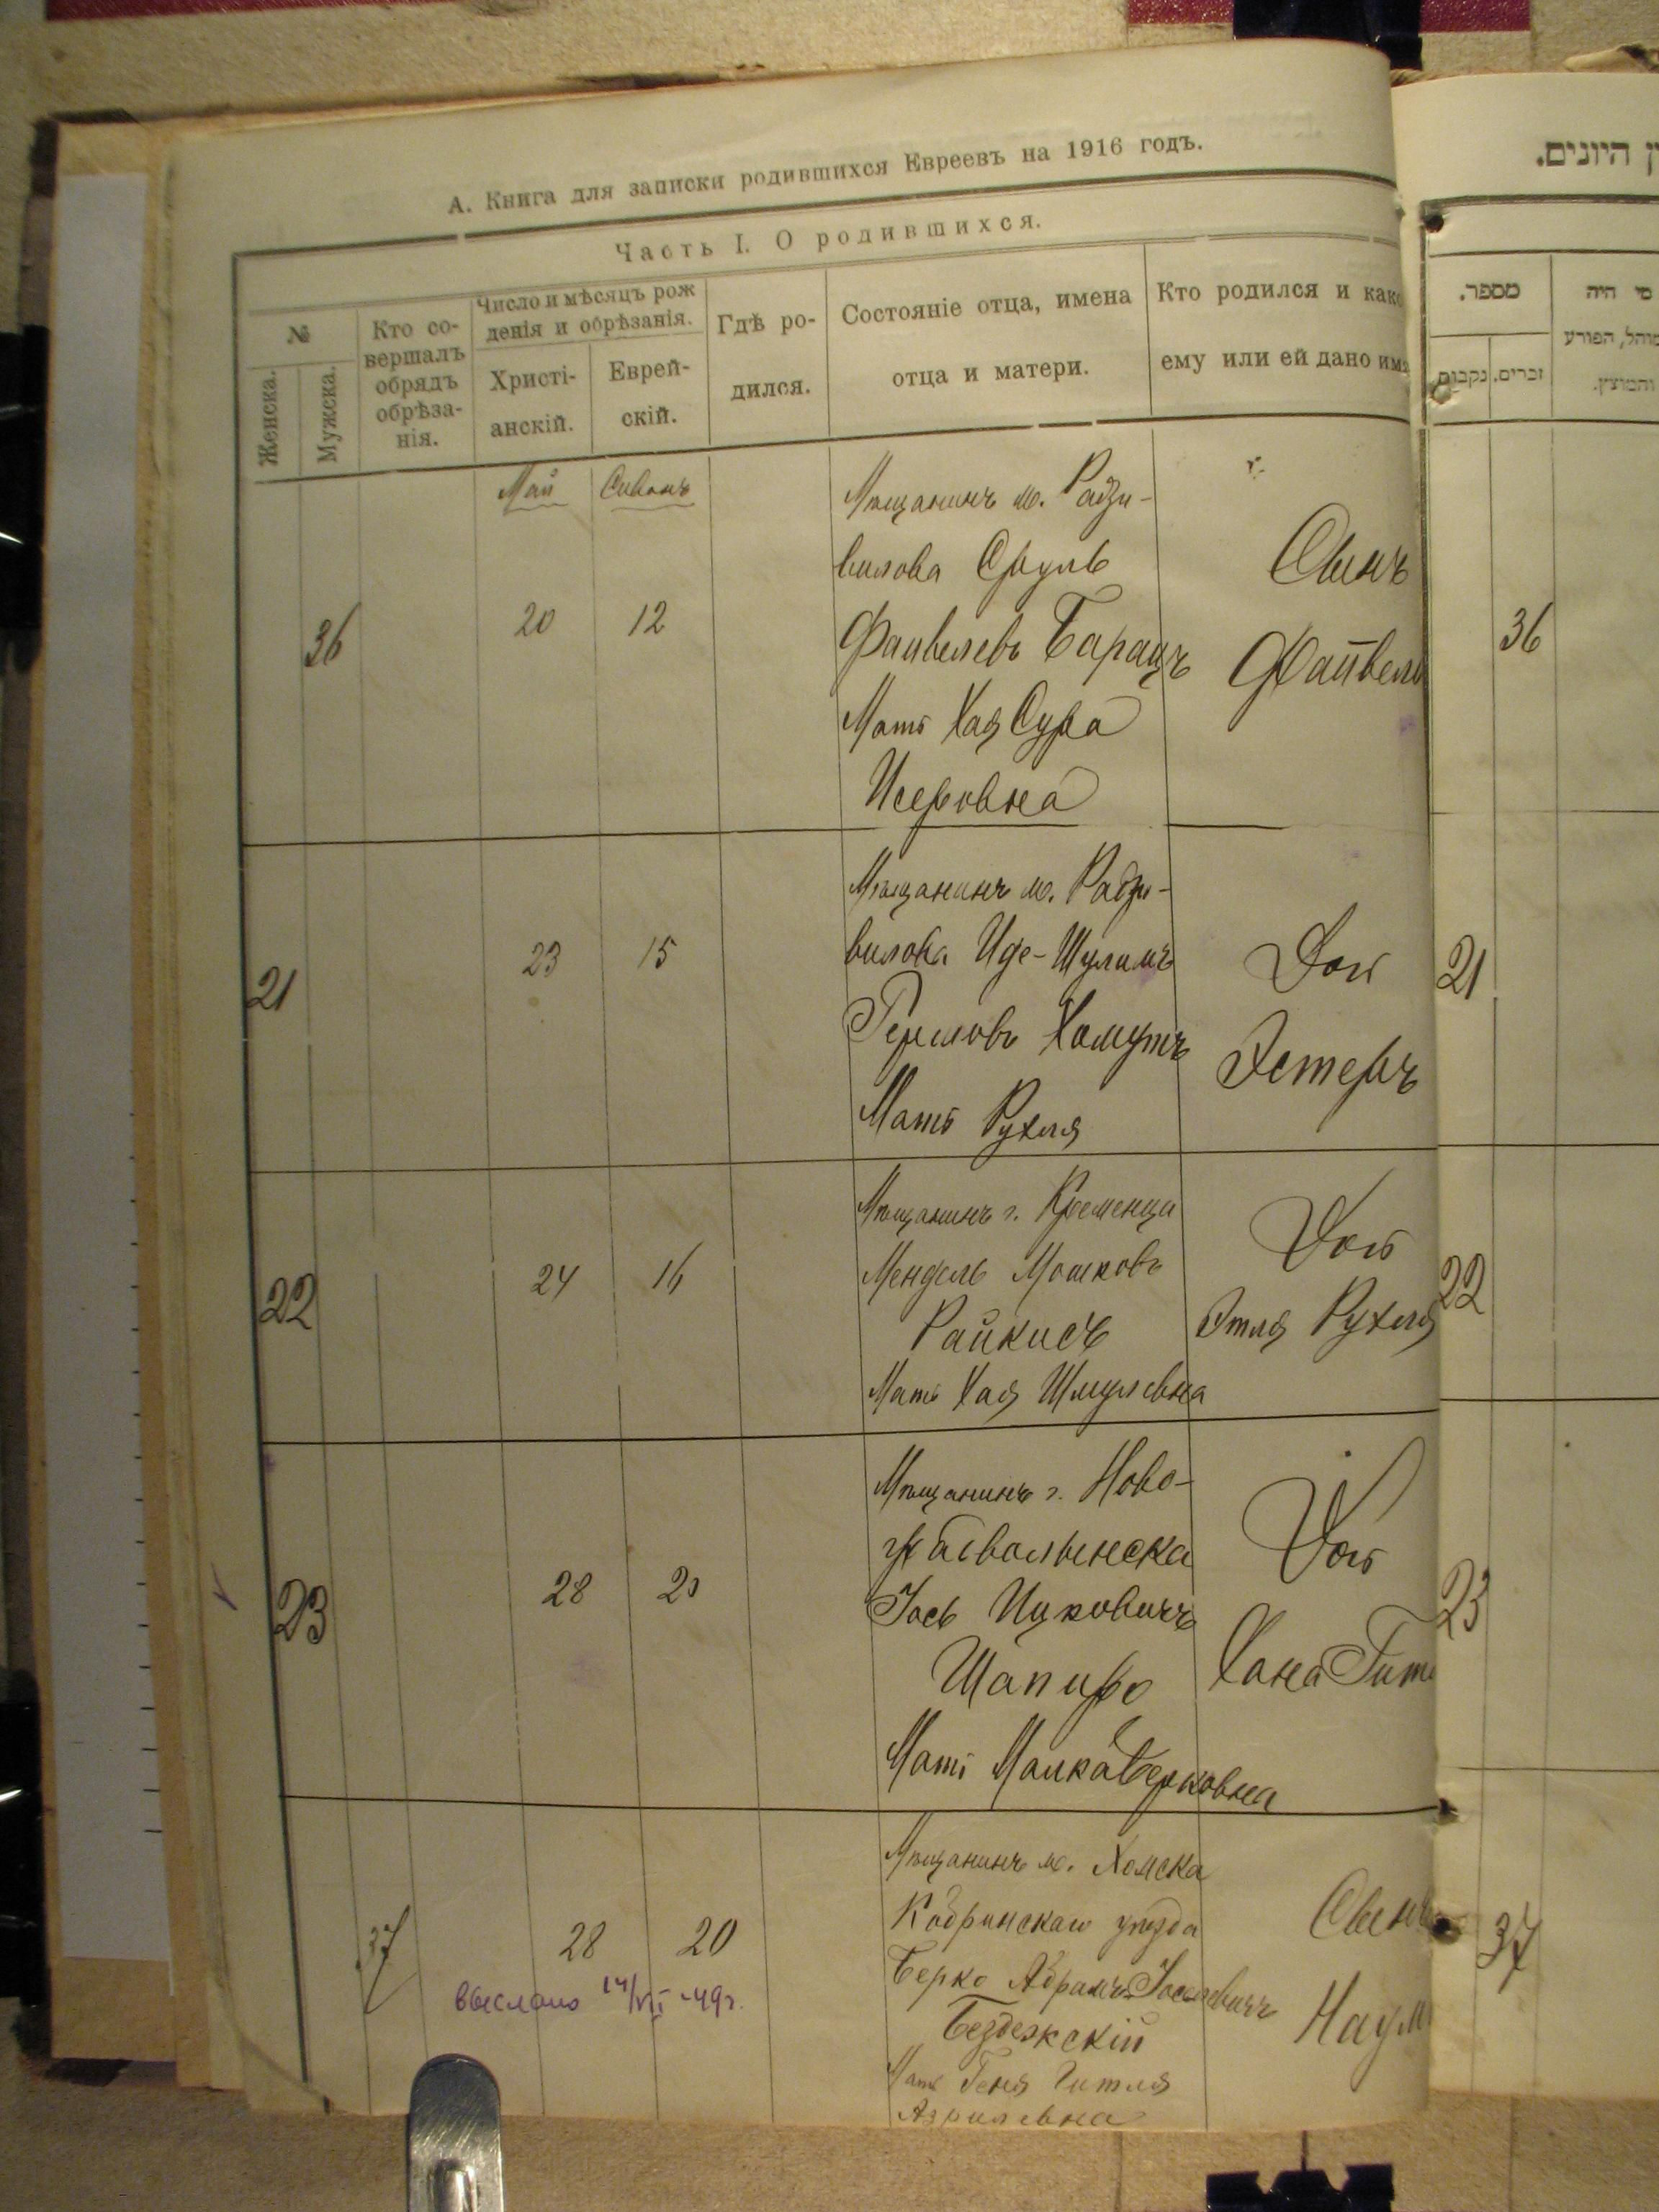 А. Книга для записки родившихся Евреевъ на 1916 годъ.
Часть I. О родившихся.
№
Женска.
Мужска.
Кто со-
вершалъ
обрядъ
обрѣза-
нія.
Число и мѣсяцъ рож
денія и обрѣзанія.
Христі-
анскій.
Еврей-
скій.
Гдѣ ро-
дился.
Состояніе отца, имена
отца и матери.
Кто родился и како
ему или ей дано имя
Май Сиванъ
36 20 12
Мѣщанинъ м. Радзи-
вилова Сруль
Файвелевъ Барацъ
Мать Хая Сура
Исеровна
Сынъ
Файвель
21 23 15
Мѣщанинъ м. Радзи-
вилова Иде-Шулимъ
Гершовъ Хомутъ
Мать Рухля
Доч
Эстеръ
22 24 16
Мѣщанинъ г. Кременца
Мендель Мошковъ
Райкисъ
Мать Хая Шмулевна
Доч
Этля Рухля
23 28 20
Мѣщанинъ г. Ново-
градволынска
Іось Ицковичъ
Шапиро
Мать Малка Берковна
Доч
Хана Гит
37 28 20
выслано 14/VII-49г.
Мѣщанинъ м. Хомска
Кобринскаго уѣзда
Берко Абрамъ Іоселевичъ
Бездежскій
Мать Геня Гитля
Азрилевна
Сынъ
Наум
ן היונים.
מספר.
נקבות
זכרים.
מי היה
מוהל, הפורע
והמוצץ.
36
21
22
23
37